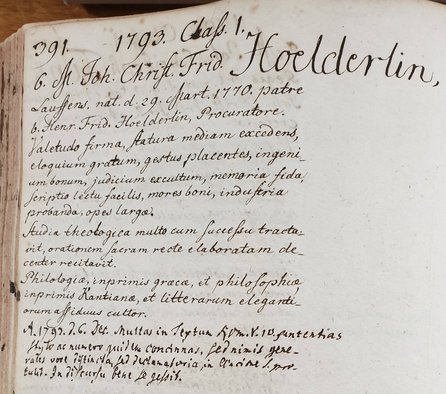 391. 1793. Class. 1.
6. M. Joh. Christ. Frid. Hoelderlin,
Lauffens. nat. d. 29. Mart. 1770. patre
b. Henr. Frid. Hoelderlin, Procuratore.
Valetudo firma, statura mediam excedens,
eloquium gratum, gestus placentes, ingeni-
um bonum, judicium excultum, memoria fida,
scriptio lectu facilis, mores boni, industria
probanda, opes largæ.
Studia theologica multo cum successu tracta-
vit, orationem sacram recte elaboratam de-
center recitavit.
Philologiæ, inprimis græcæ, et philosophiæ,
inprimis Kantianæ, et litterarum eleganti-
orum assiduus cultor.
A. 1793. d. 6. Dec. multas in textum sententias
stylo ac numero quidem concinnas, sed nimis gene-
rales voce distincta, sed declamatoria, in pro-
tulit. In discursu bene se gessit.